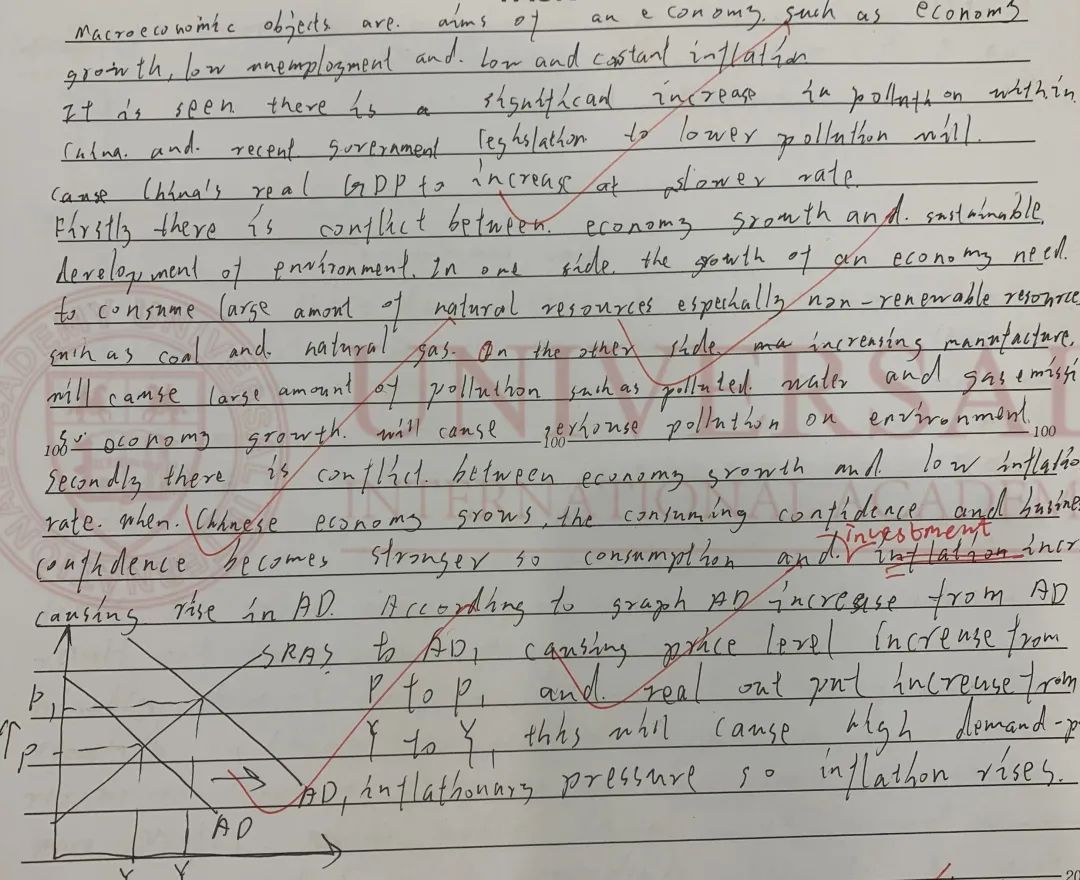 Macroeconomic objects are. aims of an economy. such as economy
growth, low unemployment and. low and costant inflation
It is seen there is a significant increase in pollution within
China. and. recent government legislation to lower pollution will.
cause China's real GDP to increase at slower rate.
Firstly there is conflict between. economy growth and. sustainable.
development of environment. In one side. the growth of an economy need.
to consume large amont of natural resources especially non-renewable resource
such as coal and. natural gas. On the other side. increasing manufacture.
will cause large amount of pollution such as polluted. water and gas emissi
100 economy growth. will cause pollution on environment. 100
100
Secondly there is conflict. between economy growth and. low inflatio
rate. when. Chinese economy grows, the consuming confidence and busine
investment
confidence becomes stronger so consumption and. inflation incr
causing rise in AD. According to graph AD increase from AD
SRAS to AD1 causing price level increase from
P1 P to P1 and. real out put increase from
P Y to Y1, this will cause high demand-p
AD1 inflationary pressure so inflation rises.
AD
Y Y
20
UNIVERSAL
INTERNATIONAL ACADEM